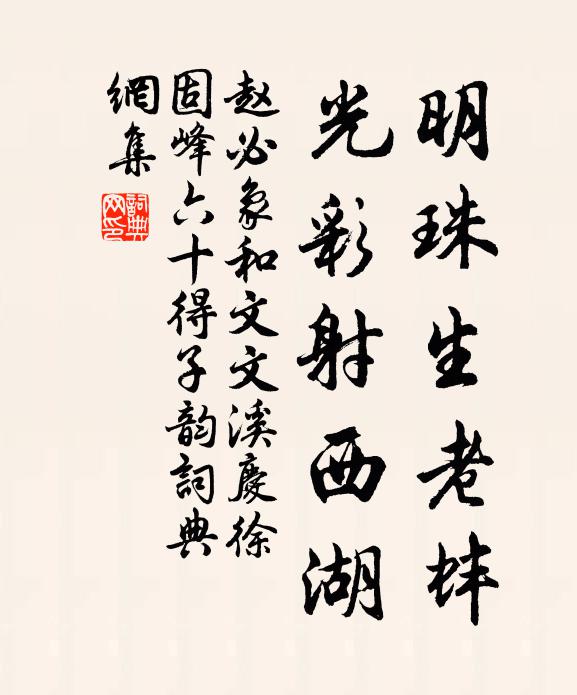 明珠生老蚌
光彩射西湖
赵必象和文文溪慶徐
固峰六十得子韵詞典
網集
詞典網印